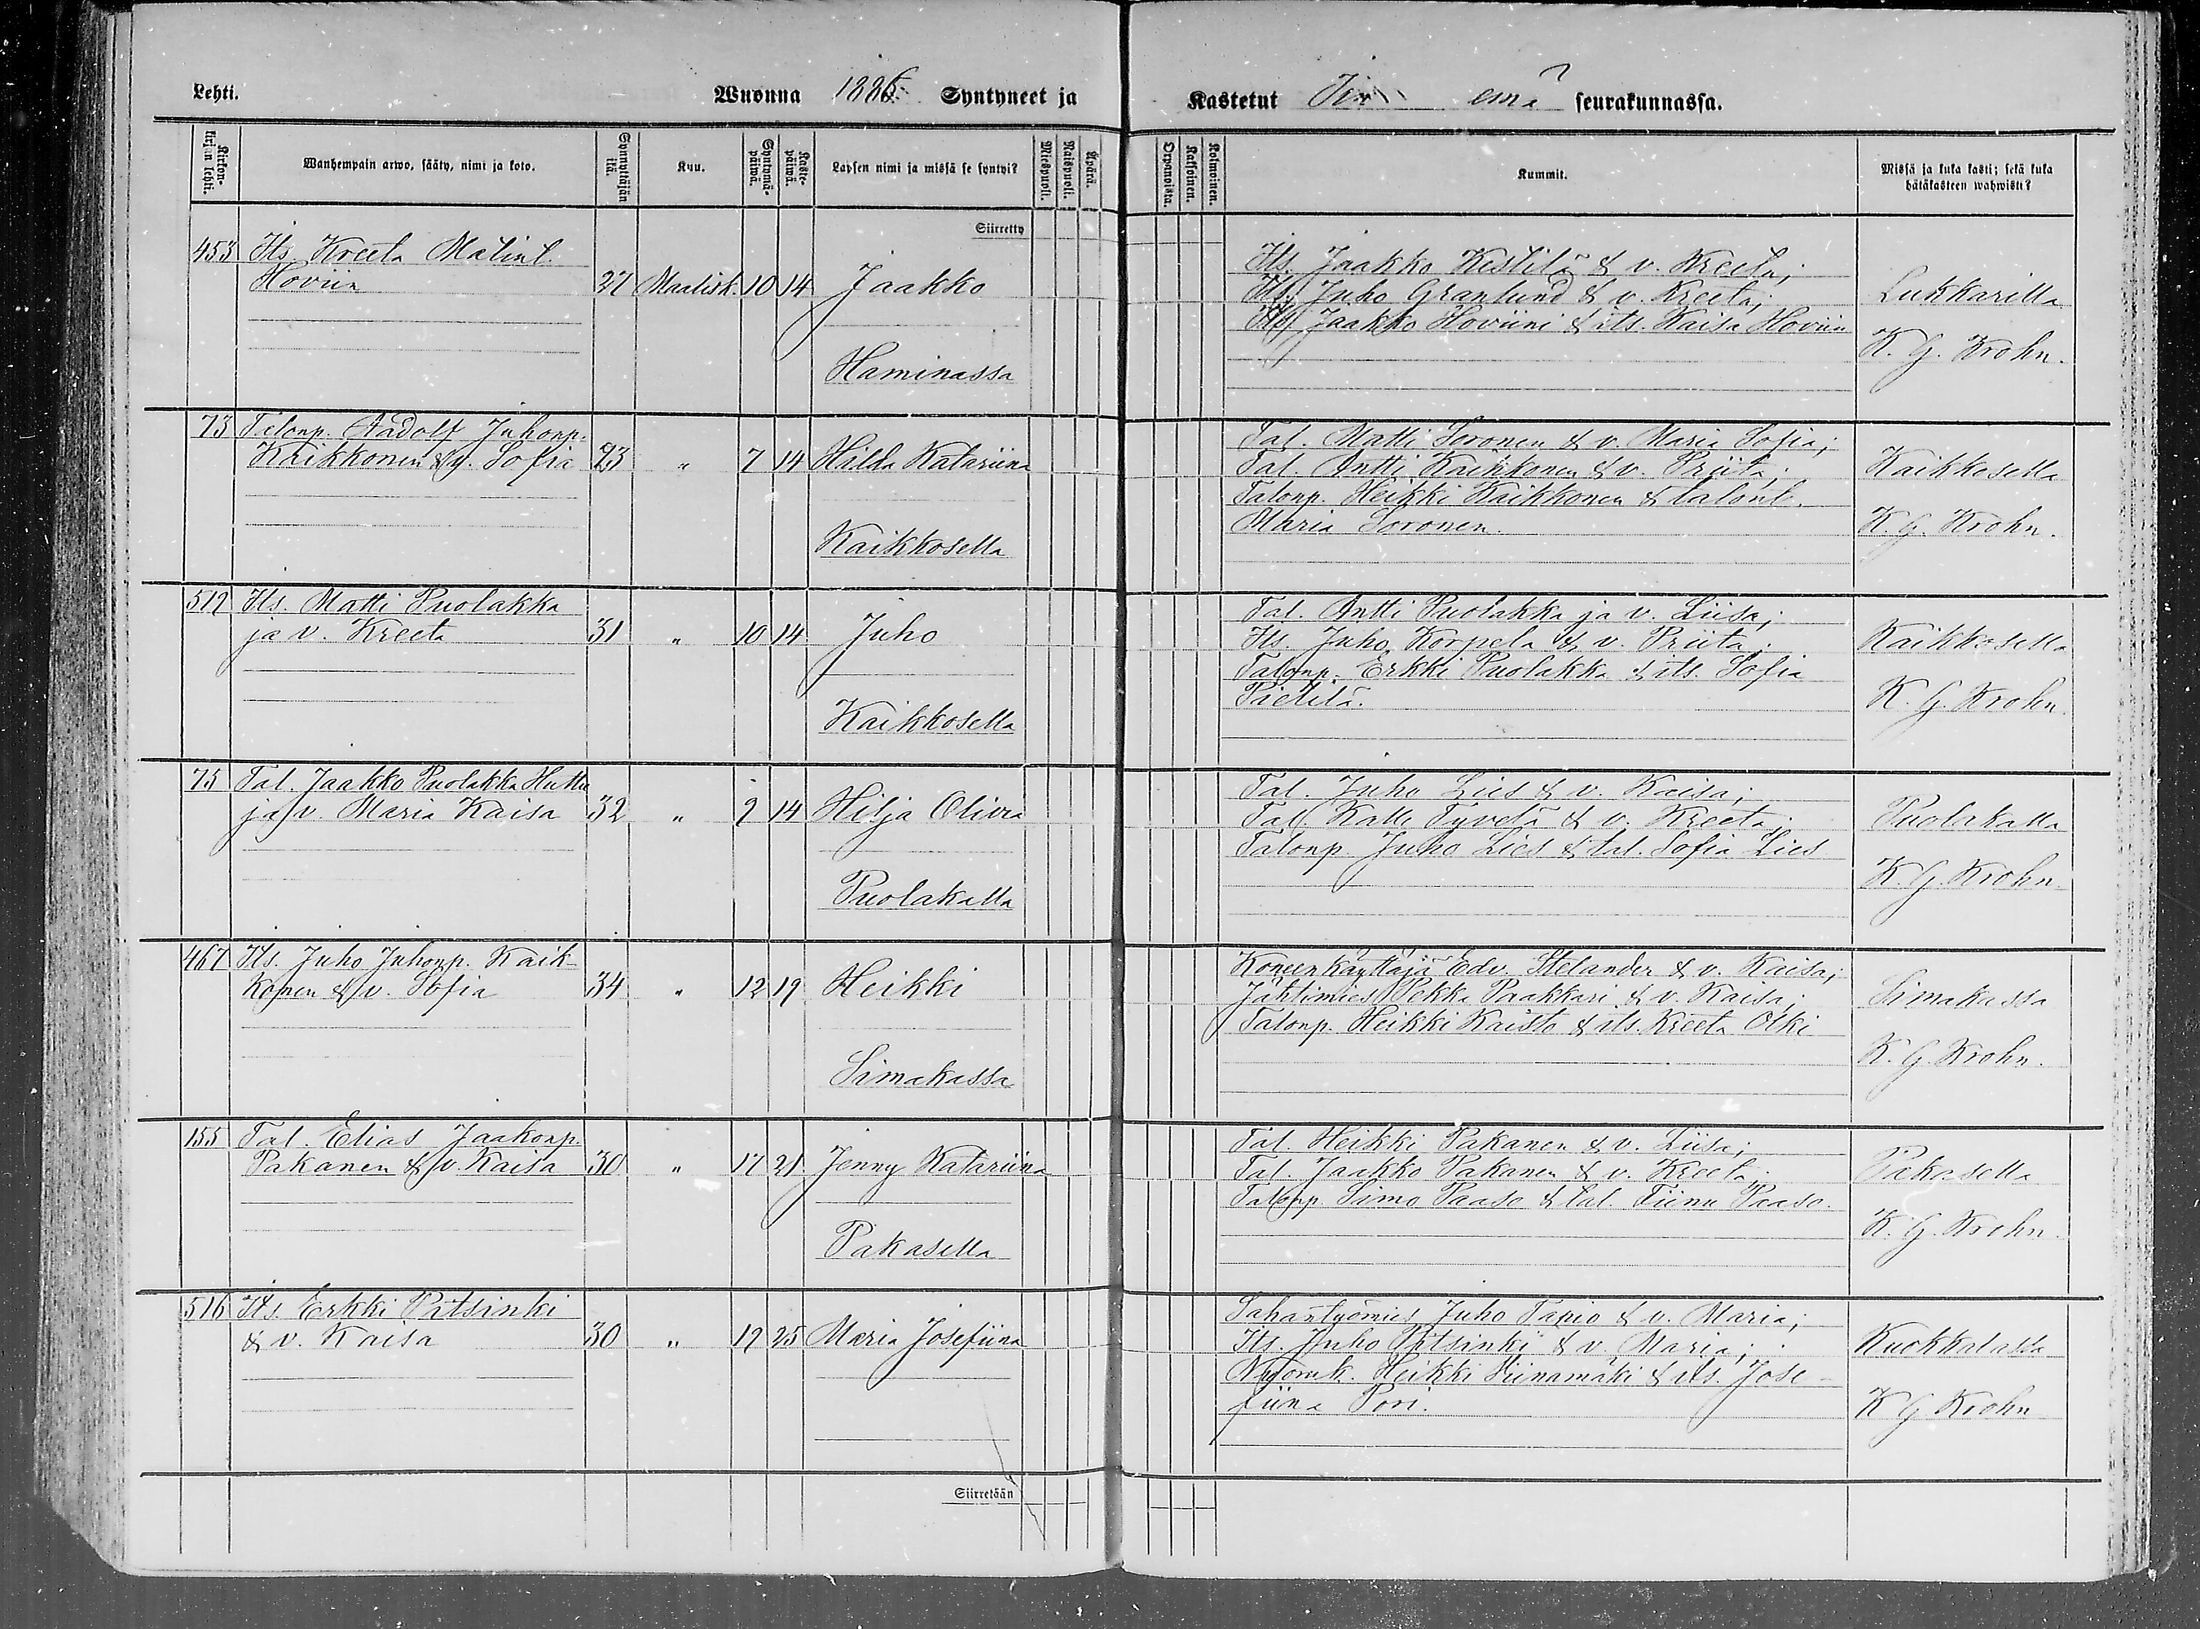 Lehti.
Wuonna 1886 Syntyneet ja
Kastetut emä seurakunnassa.
Kirkonkirjan lehti.
Wanhempain arwo, sääty, nimi ja koto.
Synnyttäjän ikä
Kuu.
Syntymäpäiwä.
Kastepäiwä.
Lapsen nimi ja missä se syntyi?
Miespuoli.
Naispuoli.
Äpärä.
Orpanoista.
Kaksoinen.
Kolmoinen.
Kummit.
Missä ja kuka kasti; sekä kuka
hätäkasteen wahwisti?
Siirretty
453 Its. Kreeta Matint.
Hoviin 27 Maalisk. 10 14 Jaakko
Haminassa
Its. Jaakko Kestilä & v. Kreeta;
Its. Juho Granlund & v. Kreeta;
Its. Jaakko Hoviini & its. Kaisa Hoviin
Lukkarilla
K. G. Krohn.
73 Talonp. Aadolf Juhonp.
Kaikkonen & v. Sofia 23 " 7 14 Hilda Katariina
Kaikkosella
Tal. Matti Soronen & v. Maria Sofia;
Tal. Antti Kaikkonen & v. Priita;
Talonp. Heikki Kaikkonen & talont.
Maria Soronen.
Kaikkosella
K. G. Krohn.
512 Its. Matti Puolakka
ja v. Kreeta 31 " 10 14 Juho
Kaikkosella
Tal. Antti Puolakka ja v. Liisa;
Its. Juho Korpela & v. Priita;
Talonp. Erkki Puolakka & its. Sofia
Pietilä.
Kaikkosella
K. G. Krohn.
75 Tal. Jaakko Puolakka Huttu
ja v. Maria Kaisa 32 " 9 14 Hilja Olivia
Puolakalla
Tal. Juho Lies & v. Kaisa;
Tal. Kalle Tyvelä & v. Kreeta;
Talonp. Juho Lies & tal. Sofia Lies
Puolakalla
K. G. Krohn.
467 Its. Juho Juhonp. Kaik-
konen & v. Sofia 34 " 12 19 Heikki
Simakassa
Koneenkäyttäjä Edv. Stelander & v. Kaisa;
Jahtimies Pekka Paakkari & v. Kaisa;
Talonp. Heikki Kaisto & its. Kreeta Olki
Simakassa
K. G. Krohn.
155 Tal. Elias Jaakonp.
Pakanen & v. Kaisa 30 " 17 21 Jenny Katariina
Pakasella
Tal. Heikki Pakanen & v. Liisa;
Tal. Jaakko Pakanen & v. Kreeta;
Talonp. Simo Paaso & tal. Tiina Paaso.
Pakasella
K. G. Krohn.
516 Its. Erkki Pitsinki
& v. Kaisa 30 " 19 25 Maria Josefiina
Sahantyömies Juho Tapio & v. Maria;
Its. Juho Pitsinki & v. Maria;
Heikki Viinamäki & its. Jose-
fiina Pori.
Kuokkalassa
K G Krohn
Siirretään